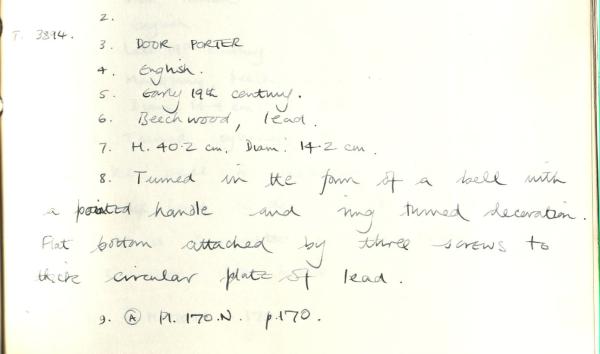 2.
T. 3894.
3. DOOR PORTER
4. English.
5. Early 19th century.
6. Beechwood, lead.
7. H. 40.2 cm. Diam: 14.2 cm.
8. Turned in the form of a bell with
a pointed handle and ring turned decoration.
Flat bottom attached by three screws to
thick circular plate of lead.
9. Ⓐ Pl. 170.N. p.170.